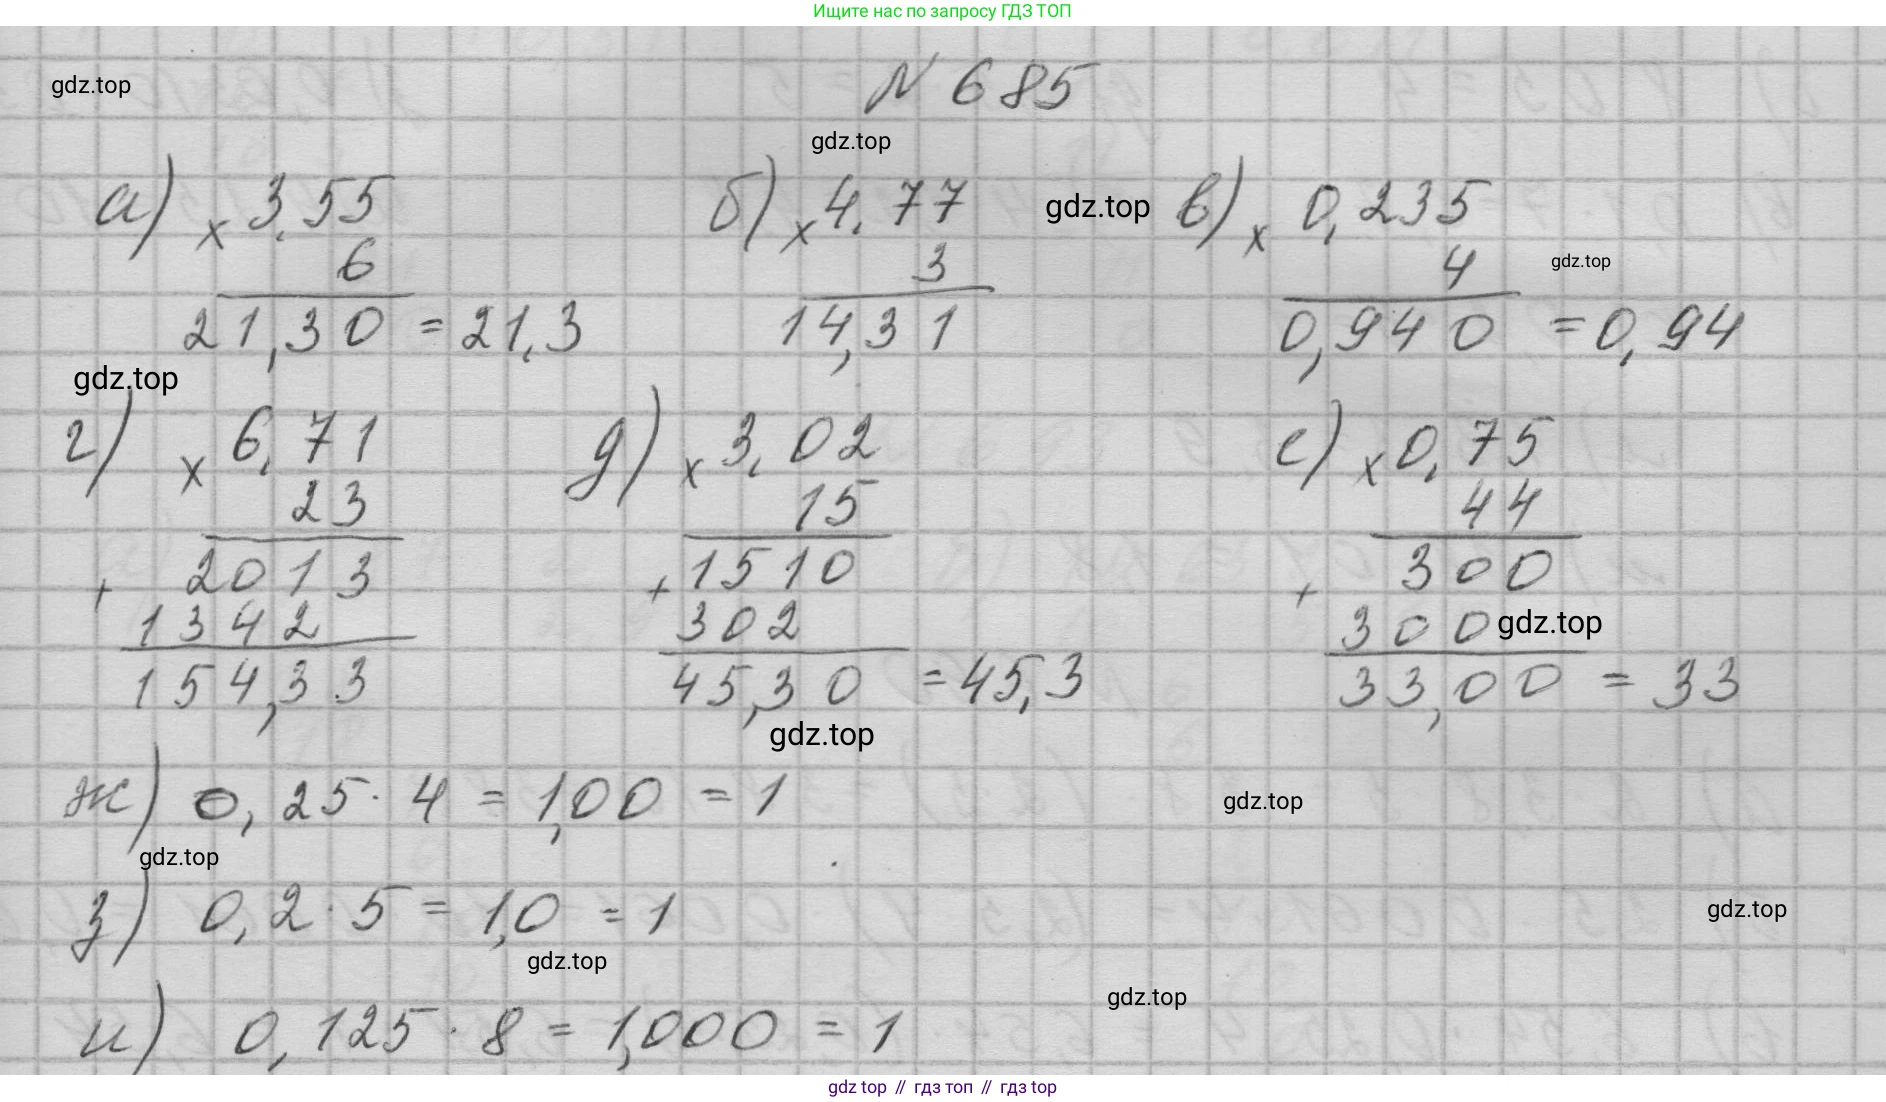 Ищите нас по запросу ГДЗ ТОП
gdz.top
N 685
gdz.top
а) × 3,55 б) × 4,77 gdz.top в) × 0,235
6 3 4 gdz.top
21,30 = 21,3 14,31 0,940 = 0,94
gdz.top
г) × 6,71 д) × 3,02 е) × 0,75
23 15 44
+ 2013 + 1510 + 300
1342 302 300 gdz.top
154,33 45,30 = 45,3 33,00 = 33
gdz.top
ж) 0,25 · 4 = 1,00 = 1
gdz.top
gdz.top
з) 0,2 · 5 = 1,0 = 1
gdz.top
gdz.top
gdz.top
и) 0,125 · 8 = 1,000 = 1
gdz top // гдз топ // гдз top